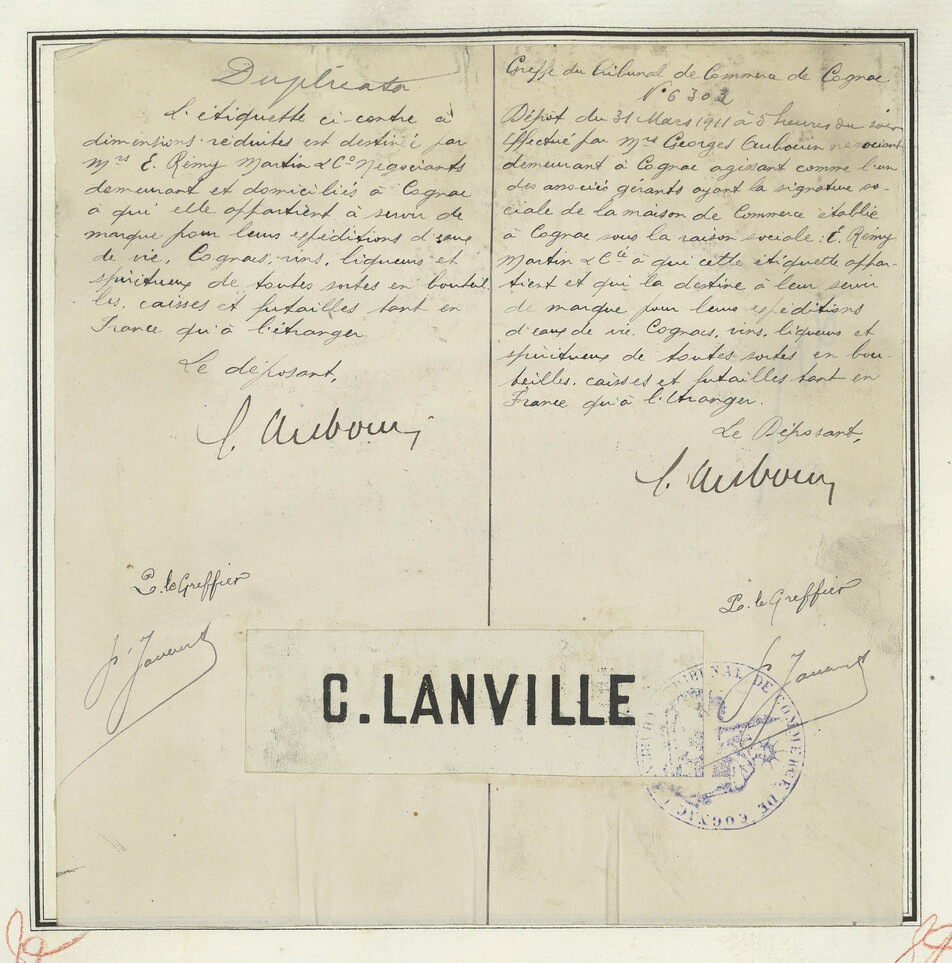 Duplicata
L'étiquette ci-contre à
dimensions réduites est destiné par
Mrs E. Rémy Martin & Co Négociants
demeurant et domiciliés à Cognac
à qui elle appartient à servir de
marque pour leurs expéditions d'eaux
de vie, Cognacs, vins, liqueurs et
spiritueux de toutes sortes en bouteil
les, caisses et futailles tant en
France qu'à l'étranger
Le déposant,
G. Aubouin
P. le Greffier
Greffe du Tribunal de Commerce de Cognac
N° 6302
Dépôt du 31 Mars 1911 à 5 heures du soir
Effectué par Mrs Georges Aubouin négociant
demeurant à Cognac agissant comme l'un
des associés gérants ayant la signature so-
ciale de la maison de Commerce établie
à Cognac sous la raison sociale : E. Rémy
Martin & Cie à qui cette étiquette appar-
tient et qui la destine à leur servir
de marque pour leurs expéditions
d'eaux de vie, Cognacs, vins, liqueurs et
spiritueux de toutes sortes en bou-
teilles, caisses et futailles tant en
France qu'à l'étranger.
Le Déposant,
G. Aubouin
P. le Greffier
C. LANVILLE
TRIBUNAL DE COMMERCE DE COGNAC